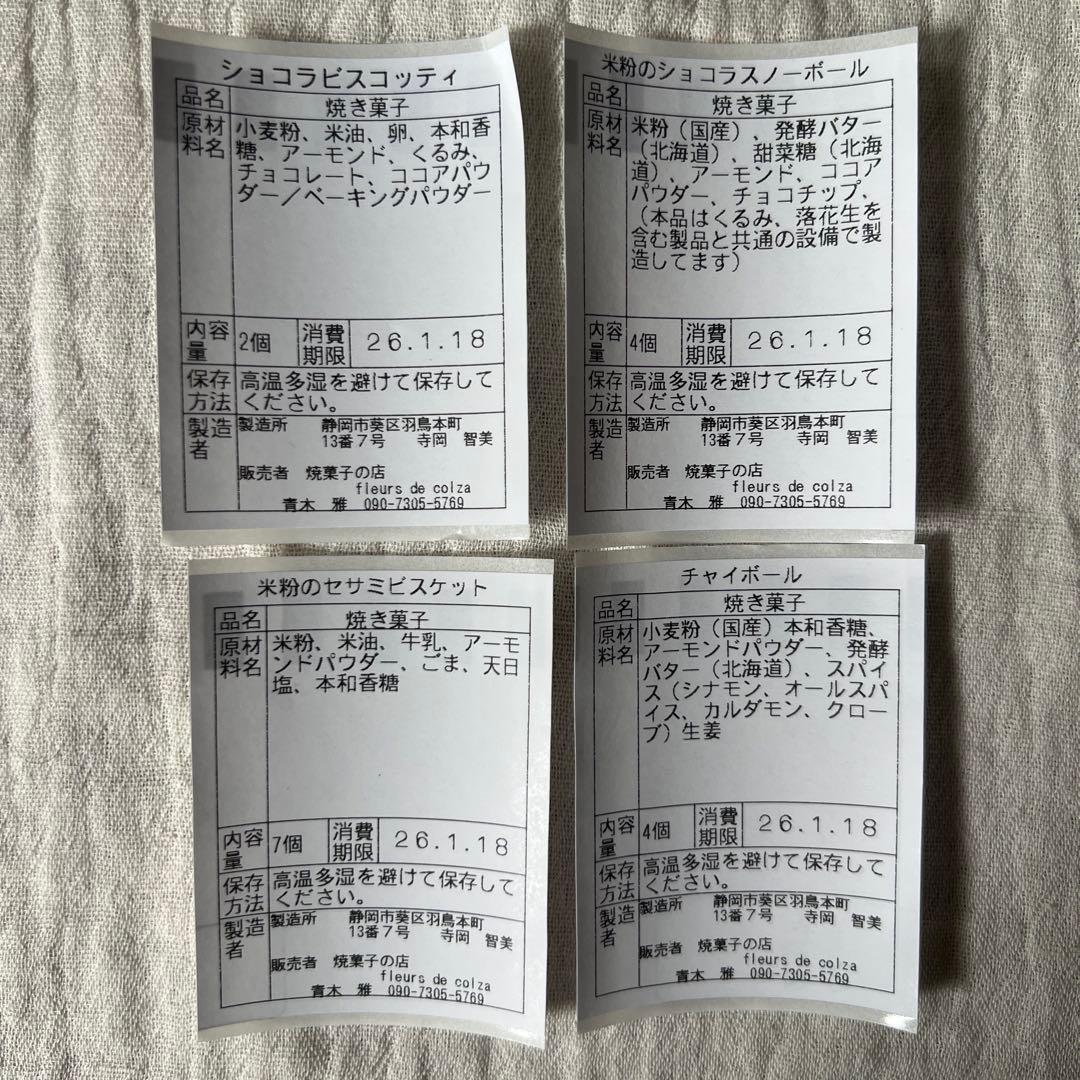 ショコラビスコッティ
品名 焼き菓子
原材料名 小麦粉、米油、卵、本和香
糖、アーモンド、くるみ、
チョコレート、ココアパウ
ダー／ベーキングパウダー
内容量 2個 消費期限 26.1.18
保存方法 高温多湿を避けて保存して
ください。
製造者 製造所 静岡市葵区羽鳥本町
13番7号 寺岡 智美
販売者 焼菓子の店
fleurs de colza
青木 雅 090-7305-5769
米粉のショコラスノーボール
品名 焼き菓子
原材料名 米粉（国産）、発酵バター
（北海道）、甜菜糖（北海
道）、アーモンド、ココア
パウダー、チョコチップ、
（本品はくるみ、落花生を
含む製品と共通の設備で製
造してます）
内容量 4個 消費期限 26.1.18
保存方法 高温多湿を避けて保存して
ください。
製造者 製造所 静岡市葵区羽鳥本町
13番7号 寺岡 智美
販売者 焼菓子の店
fleurs de colza
青木 雅 090-7305-5769
米粉のセサミビスケット
品名 焼き菓子
原材料名 米粉、米油、牛乳、アーモ
ンドパウダー、ごま、天日
塩、本和香糖
内容量 7個 消費期限 26.1.18
保存方法 高温多湿を避けて保存して
ください。
製造者 製造所 静岡市葵区羽鳥本町
13番7号 寺岡 智美
販売者 焼菓子の店
fleurs de colza
青木 雅 090-7305-5769
チャイボール
品名 焼き菓子
原材料名 小麦粉（国産）本和香糖、
アーモンドパウダー、発酵
バター（北海道）、スパイ
ス（シナモン、オールスパ
イス、カルダモン、クロー
ブ）生姜
内容量 4個 消費期限 26.1.18
保存方法 高温多湿を避けて保存して
ください。
製造者 製造所 静岡市葵区羽鳥本町
13番7号 寺岡 智美
販売者 焼菓子の店
fleurs de colza
青木 雅 090-7305-5769